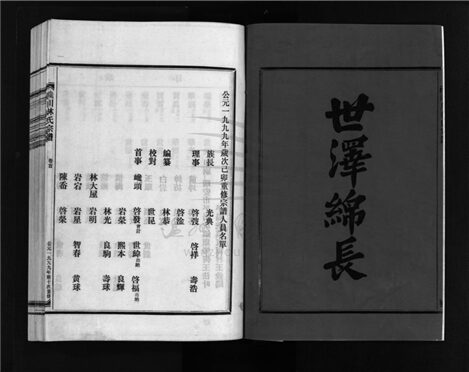 世澤綿長
公元一九九九年歲次己卯重修宗譜人員名單
族長 光典
理事 啓蓂 啓祥 壽浩
啓淦
編纂 林恭
校對 世昆
首事 峴頭 啓發 世緯 啓福
岩榮 熙本 良輝
林光 良駒 壽球
林大屋 岩明
岩宕 岩星 智春 黃球
陳岙 啓榮
林氏宗譜
卷首